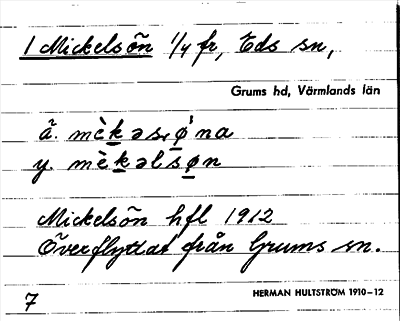 1 Mickelsön 1/4 fr, Eds sn,
Grums hd, Värmlands län
ä. mèkəs,ø̀na
y. mèkəlsøn
Mickelsön hfl 1912
Överflyttat från Grums sn.
7
HERMAN HULTSTRÖM 1910–12